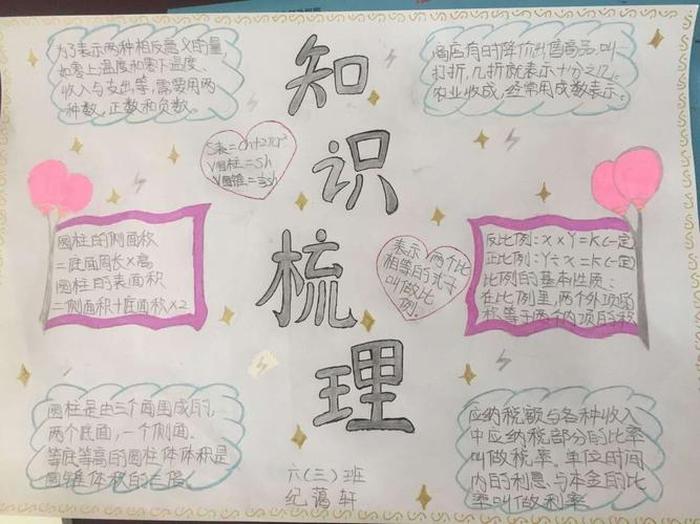 知识梳理
为了表示两种相反意义的量,
如零上温度和零下温度、
收入与支出等,需要用两
种数,正数和负数。
商店有时降价出售商品,叫
打折,几折就表示十分之几。
农业收成,经常用成数表示。
S表=Ch+2πr²
V圆柱=Sh
V圆锥=⅓sh
圆柱的侧面积
=底面周长×高
圆柱的表面积
=侧面积+底面积×2
表示两个比
相等的式子
叫做比
例。
反比例:x×y=k(一定)
正比例:y÷x=k(一定)
比例的基本性质:
在比例里,两个外项的
积等于两个内项的积
圆柱是由三个面围成的,
两个底面,一个侧面.
等底等高的圆柱体体积是
圆锥体积的三倍
应纳税额与各种收入
中应纳税部分的比率
叫做税率。单位时间
内的利息与本金的比
率叫做利率
六(三)班
纪蔼轩